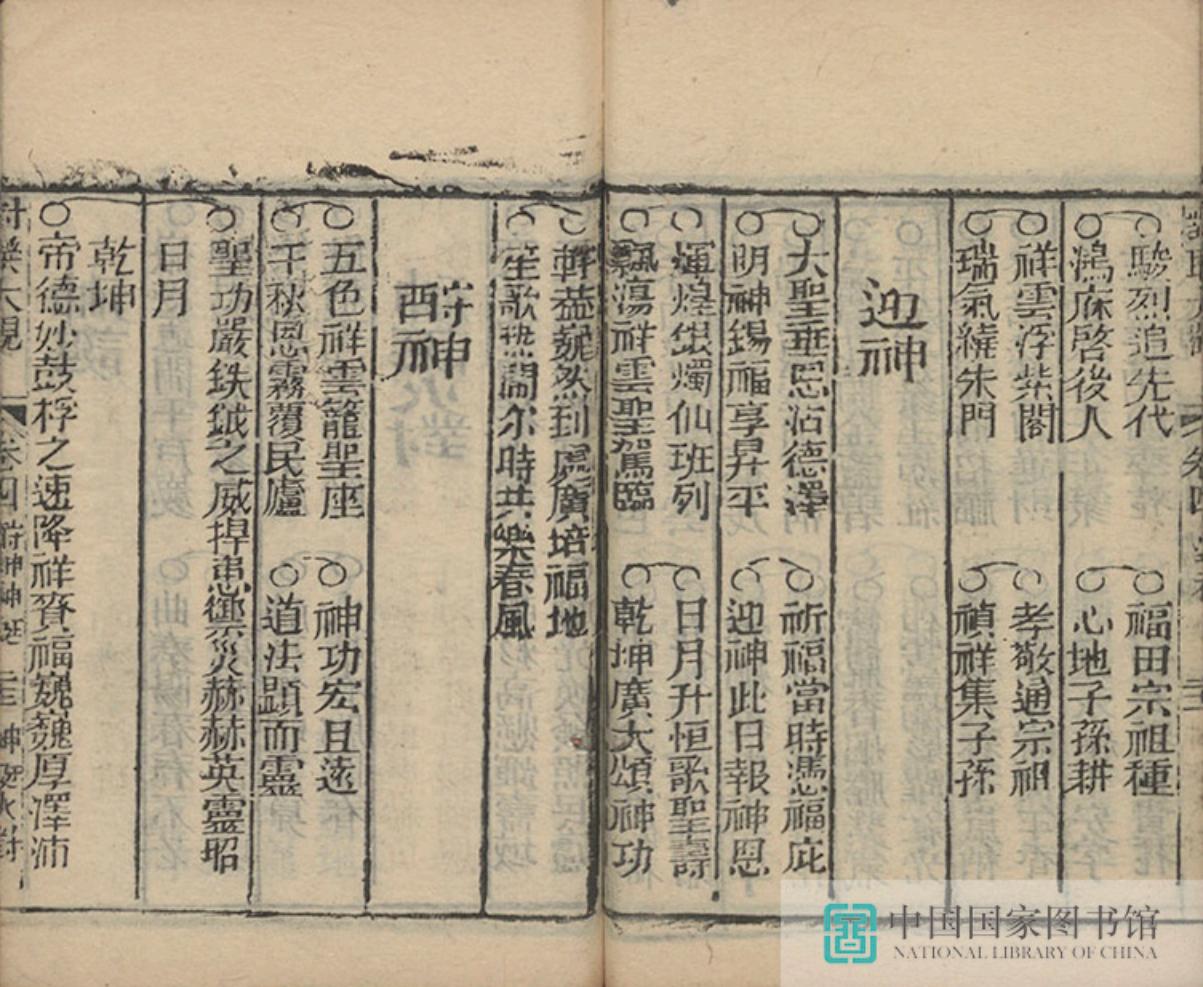 駿烈追先代 福田宗祖種
鴻庥啓後人 心地子孫耕
祥雲浮紫閣 孝敬通宗祖
瑞氣繞朱門 禎祥集子孫
迎神
大聖垂恩沾德澤 祈福當時憑福庇
明神錫福享昇平 迎神此日報神恩
輝煌銀燭仙班列 日月升恒歌聖壽
飄蕩祥雲聖駕臨 乾坤廣大頌神功
軿蓋巍然到處廣培福地
笙歌熱閙尔時共樂春風
守神
酉神
五色祥雲籠聖座 神功宏且遠
千秋恩霧覆民廬 道法顕而靈
聖功嚴鈇鉞之威捍患禦災赫赫英靈昭
日月
乾坤
帝德妙鼓桴之速降祥賚福巍巍厚澤沛
卷四
中国国家图书馆
NATIONAL LIBRARY OF CHINA